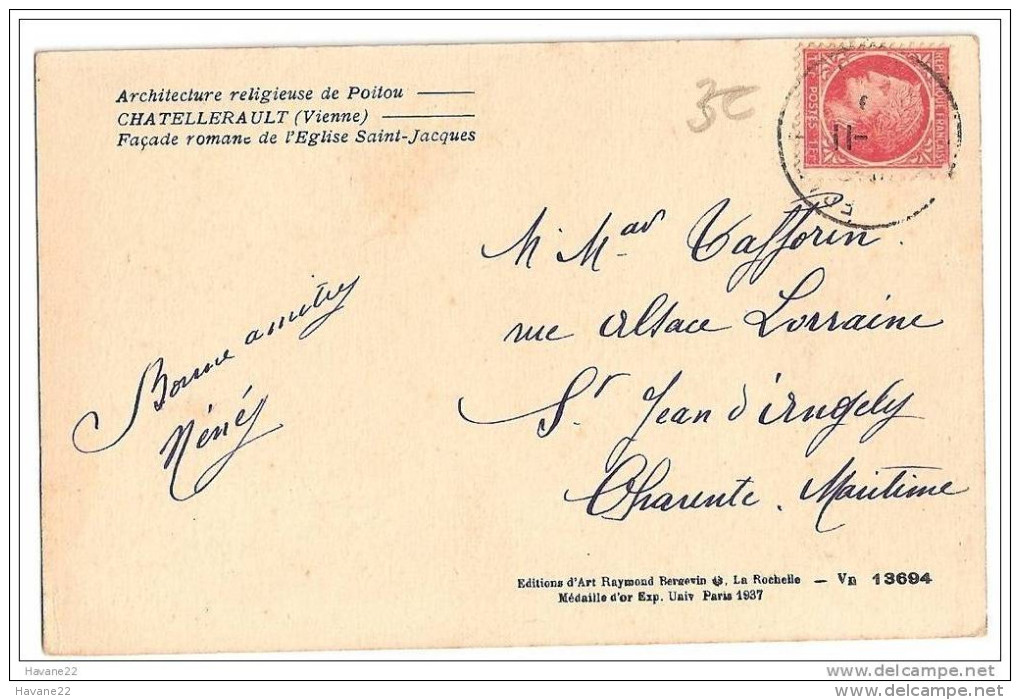 Architecture religieuse de Poitou
CHATELLERAULT (Vienne)
Façade romane de l'Eglise Saint-Jacques
3€
RÉPUBLIQUE FRANÇAISE
POSTES 1F
M. Mar Tafforin.
rue Alsace Lorraine
St Jean d'Angely
Charente. Maritime
Bonne amitiés
Néné
Editions d'Art Raymond Bergevin, La Rochelle — Vn 13694
Médaille d'or Exp. Univ Paris 1937
Havane22
www.delcampe.net
Havane22
www.delcampe.net